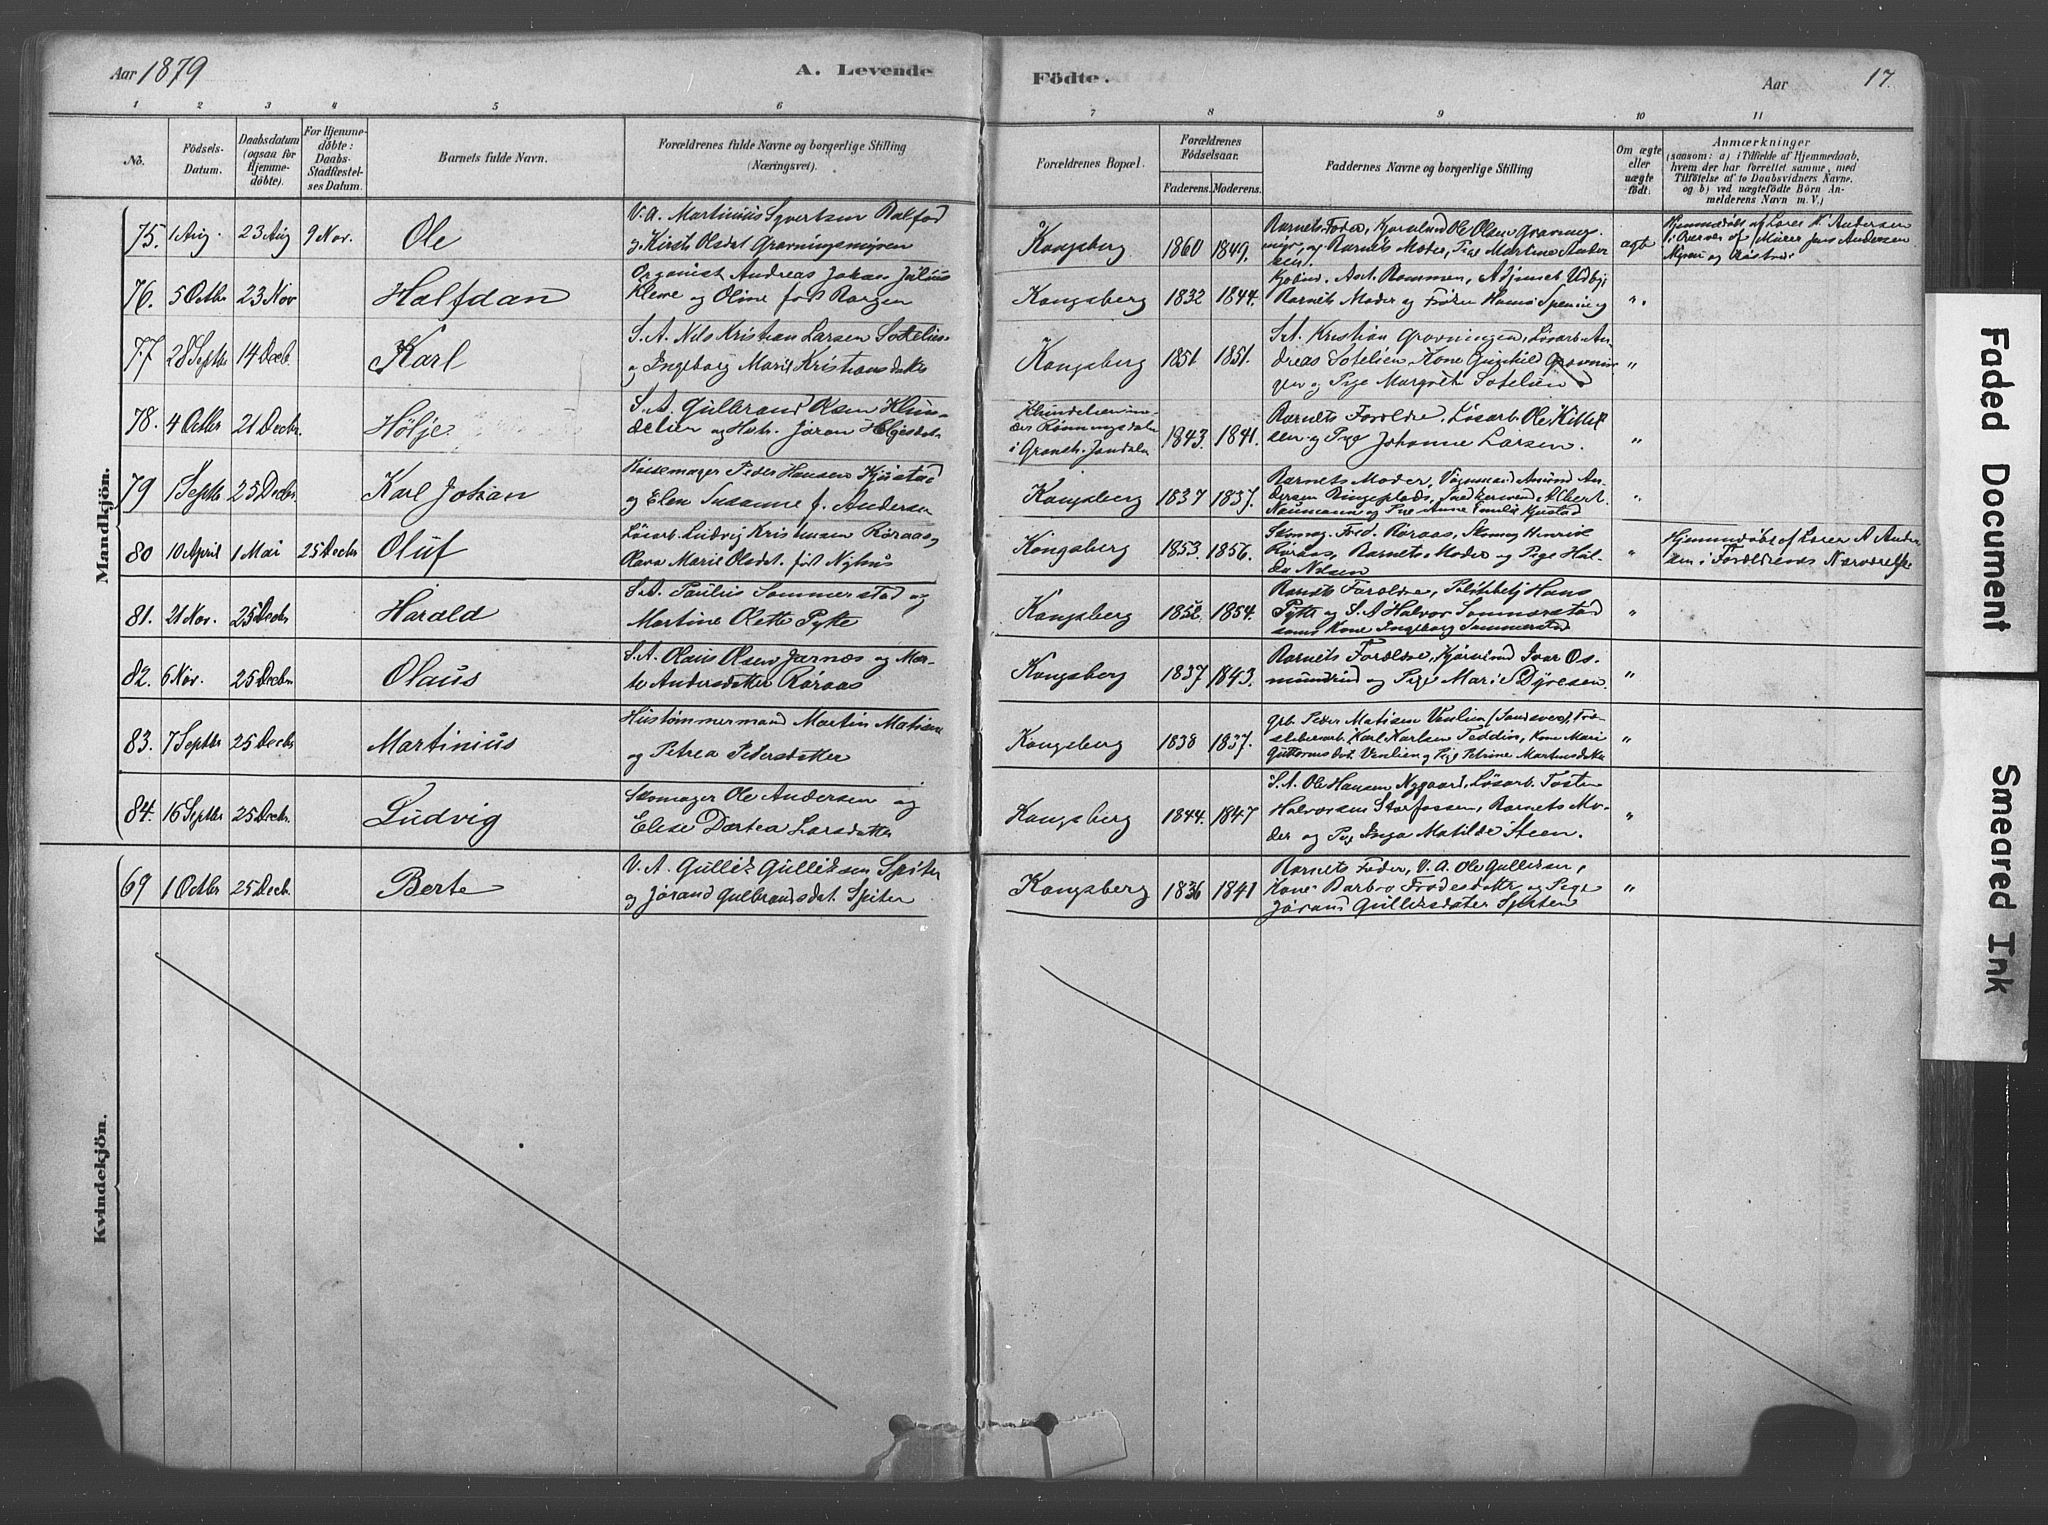 Aar 1879
A. Levende
Födte.
Aar
17.
1 2 3 4 5 6 7 8 9 10 11
No.
Födsels-
Datum.
Daabsdatum
(ogsaa for
Hjemme-
döbte).
For Hjemme-
döbte:
Daabs-
Stadfæstel-
ses Datum.
Barnets fulde Navn.
Forældrenes fulde Navne og borgerlige Stilling
(Næringsvei).
Forældrenes Bopæl.
Forældrenes
Födselsaar.
Faderens. Moderens.
Faddernes Navne og borgerlige Stilling
Om ægte
eller
uægte
födt.
Anmærkninger
(saasom: a) i Tilfælde af Hjemmedaab,
hvem der har forrettet samme, med
Tilföielse af to Daabsvidners Navne,
og b) ved uægtefödte Börn An-
melderens Navn m. V.)
Mandkjön.
75. 1 Aug. 23 Aug 9 Nov. Ole
V.A. Martinius Syvertsen
og Kirsti Olsdat Gravningsmyren
Kongsberg 1860 1849.
Barnets Fader, Ole Olsen Gravnings
og Barnets Moder, Pige Martine Ander
sen.
ægte
Hjemmedøbt af Andersen
af Murer Jens Andersen
Myren og
76. 5 Octbr 23 Nov Halfdan
Organist Andreas Johan Julius
Klewe og Oline født Borgen
Kongsberg 1832 1844.
Kjøbmd. Ant. Rommen, Adjunct Udbye
Barnets Moder og Frøken Spening
"
77 28 Septbr 14 Decb. Karl
S.A. Nils Kristian Larsen Sotelien
og Ingeborg Marie Kristiansdatter
Kongsberg 1851 1851.
S.A. Kristian Gravningen, Løsarb. An-
dreas Sotelien, Kone Gunhild Gravnin-
gen og Pige Margreth Sotelien
"
78. 4 Octbr 21 Decbr. Hølje
S.A. Gulbrand Olsen Klun-
delien og Hstr. Jøran Helgesdat.
Klundelien un-
der Rønningsdalen
i Gransh. Jondalen
1843. 1841.
Barnets Forældre, Løsarb. Ole Kittil
sen og Pige Johanne Larsen.
"
79 1 Septb 25 Decbr Karl Johan
Peder Hansen Kjustad
og Elen Susanne f. Andersen
Kongsberg 1837 1837.
Barnets Moder, Amund An-
dersen Ringeplads, Snedkersvend Albert
Naumann og Pige Anne Emilie Kjustad
"
80 10 April 1 Mai 25 Decbr Oluf
Løsarb. Ludvig Kristiansen Røraas,
Olava Marie Olsdat. født Nyhus
Kongsberg 1853. 1856.
Skomag. Ford. Røraas, Skomag Henrik
Røraas, Barnets Moder og Pige Hul-
da Nilsen
"
Hjemmedøbt af Lærer A Ander
sen i Forældrenes Nærværelse
81. 21 Nov. 25 Decbr Harald
S.A. Paulus Sommerstad og
Martine Olette Pytte
Kongsberg 1852 1854.
Barnets Forældre, Politibetj Hans
Pytte og S.A Halvor Sommerstad
samt Kone Ingeborg Sommerstad
"
82. 6 Nov. 25 Decbr Olaus
S.A. Olaus Olsen Jarnæs og Mar-
te Andersdatter Røraas
Kongsberg 1837 1843.
Barnets Forældre, Ivar Os-
mundrud og Pige Marie Dyresen.
"
83. 7 Septbr 25 Decbr Martinius
Hustømmermand Martin Matisen
og Petrea Pedersdatter
Kongsberg 1838 1837.
Grb. Peder Matisen Venlien (Sandsver), Træ-
sleberarb. Karl Karlsen Teddin, Kone Mari
Guttormsdat. Venlien og Pige Petrine Martinsdatter
"
84. 16 Septbr 25 Decbr. Ludvig
Skomager Ole Andersen og
Elise Dortea Larsdatter
Kongsberg 1844. 1847
S.A. Ole Hansen Nygaard, Løsarb. Tosten
Halvorsen Storfossen, Barnets Mo-
der og Pige Inga Matilde Steen.
"
Kvindekjön.
69 1 Octbr 25 Decb. Berte
V.A. Gullik Gulliksen Spiten
og Jørand Gulbrandsdat. Spiten
Kongsberg 1836 1841
Barnets Fader, V.A. Ole Gulliksen,
Kone Barbro Frødesdatter og Pige
Jørand Gulliksdatter Spiten
"
Faded Document
Smeared Ink